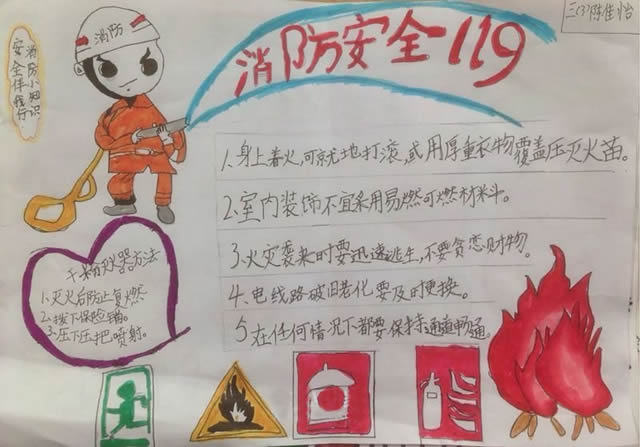 三(3)陈佳怡
消防安全119
消防
消防小知识
安全伴我行
1.身上着火,可就地打滚,或用厚重衣物覆盖压灭火苗。
2.室内装饰不宜采用易燃可燃材料。
3.火灾袭来时要迅速逃生,不要贪恋财物。
4、电线路破旧老化要及时更换。
5.在任何情况下都要保持通道畅通。
干粉灭火器方法
1.灭火后防止复燃
2.拔下保险销。
3.压下压把喷射。